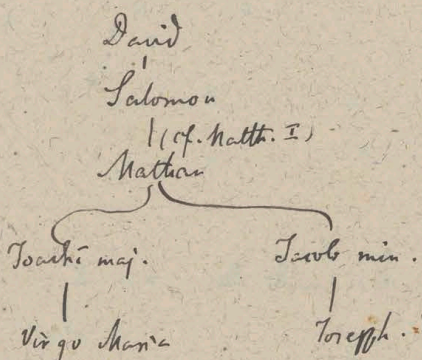 David
Salomon
(cf. Matth. I)
Mathan
Joachī maj. Jacob min.
Virgo Maria Joseph.